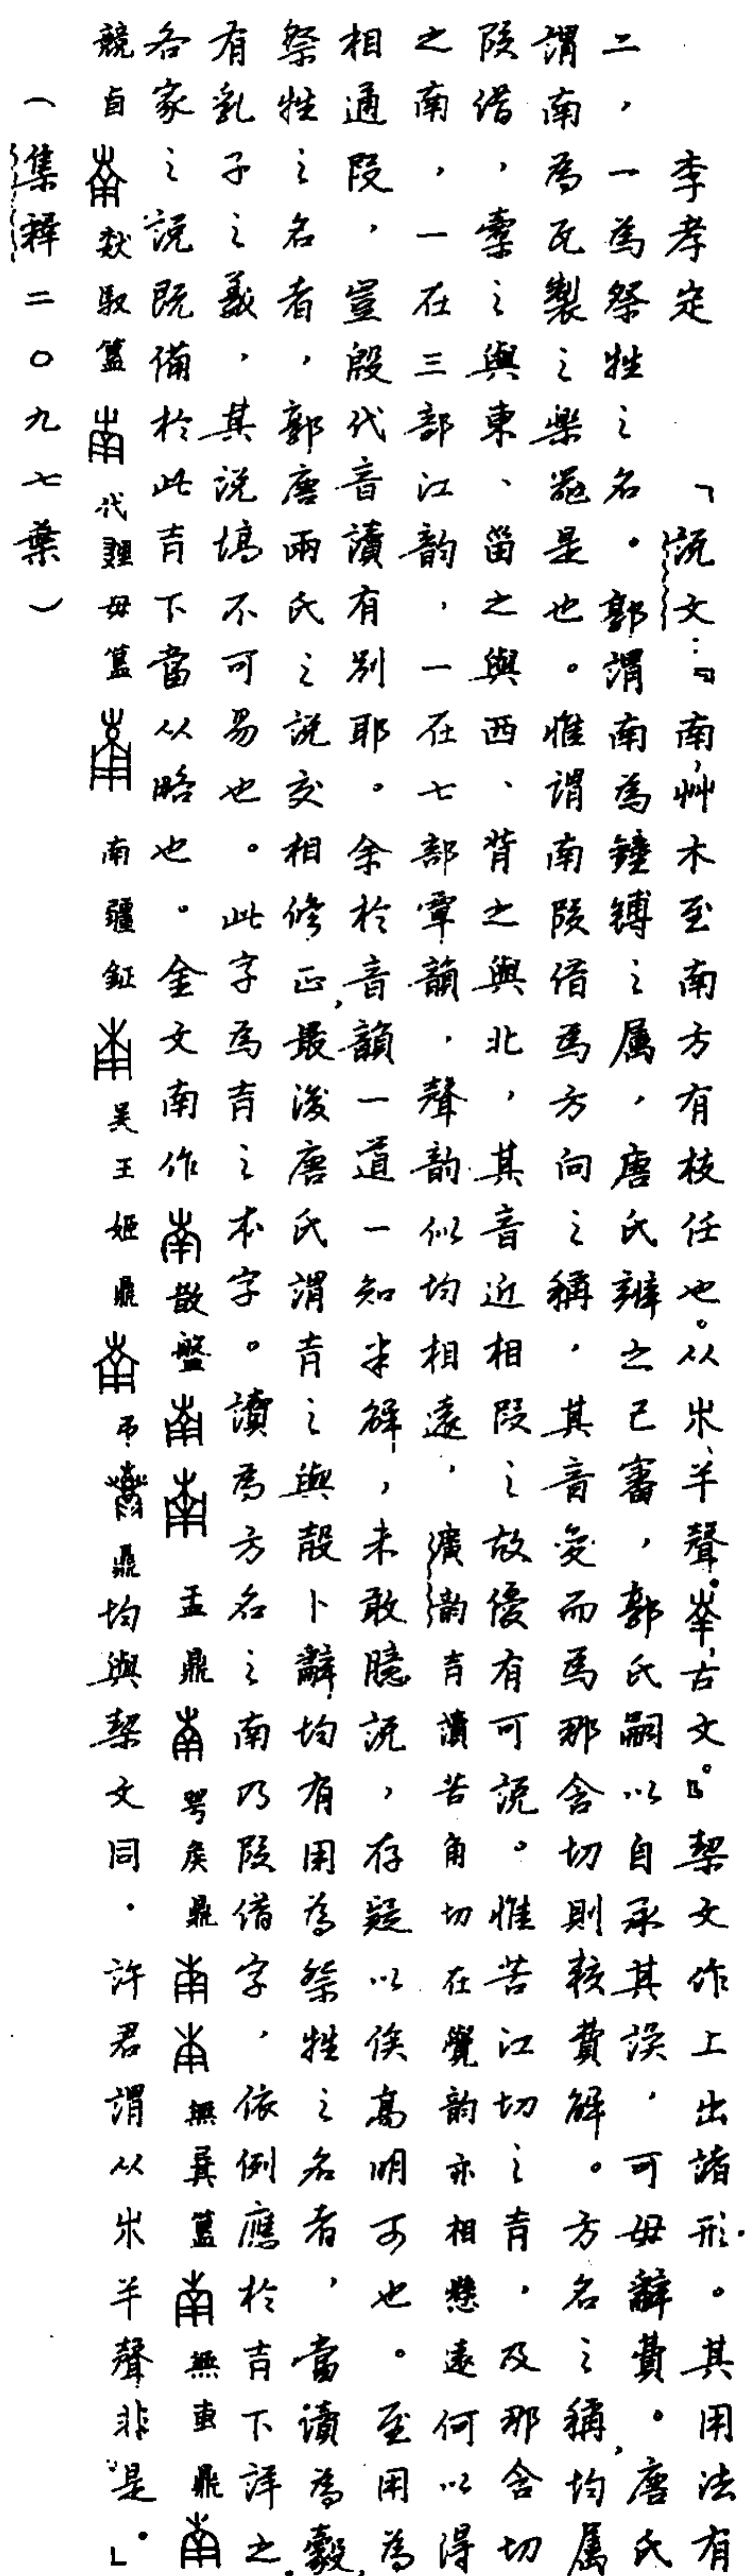 李孝定 「說文：『南，艸木至南方有枝任也。从𣎵，𢆉聲。𡴖，古文。』契文作上出諸形。其用法有
二，一為祭牲之名。郭謂南為鐘鎛之属，唐氏辨之已審，郭氏嗣以自承其誤，可毋辭費。唐氏
謂南為瓦製之樂器是也。惟謂南叚借為方向之稱，其音變而為那含切則較費解。方名之稱，均属
叚借，橐之與東、甾之與西、背之與北，其音近相叚之故優有可說。惟苦江切之青，及那含切
之南，一在三部江韵，一在七部覃韻，聲韵似均相遠，廣韵青讀苦角切在覺韵亦相懸遠何以得
相通叚，豈殷代音讀有別耶。余於音韻一道一知半解，未敢臆說，存疑以俟高明可也。至用為
祭牲之名者，郭唐兩氏之說交相修正，最後唐氏謂青之與㱿卜辭均有用為祭牲之名者，當讀為縠，
有乳子之義，其說塙不可易也。此字為青之本字。讀為方名之南乃叚借字，依例應於青下詳之。
各家之說既備於此青下當从略也。金文南作散盤盂鼎噩侯鼎無㠱簋無叀鼎
競卣㝬馭簋代䚄母簋南疆鉦吴王姬鼎弔鼎均與契文同．許君謂从𣎵𢆉聲非是。」
（集釋二〇九七葉）